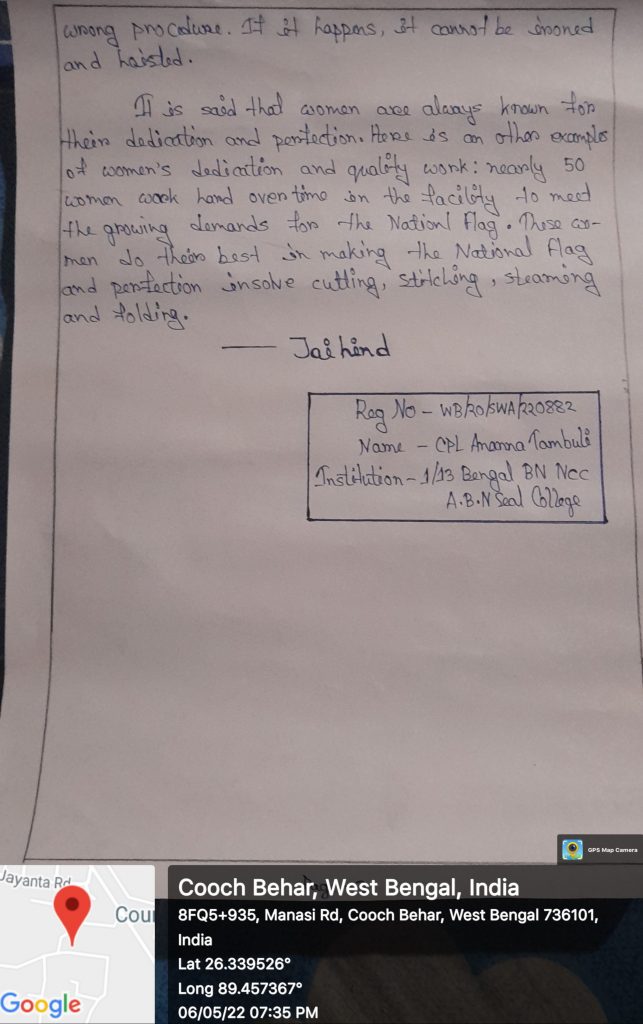 wrong procedure. If it happens, it cannot be ironed
and hoisted.
It is said that women are always known for
their dedication and perfection. Here is an other example
of women's dedication and quality work: nearly 50
women work hand over time in the facility to meet
the growing demands for the Nationl Flag. These wo-
men do their best in making the National Flag
and perfection insolve cutting, stitching, steaming
and folding.
— Jai hind
Reg No - WB/20/SWA/220882
Name - CPL Ananna Tambuli
Institution - 1/13 Bengal BN NCC
A.B.N Seal College
GPS Map Camera
Jayanta Rd
Cour
Google
Cooch Behar, West Bengal, India
8FQ5+935, Manasi Rd, Cooch Behar, West Bengal 736101,
India
Lat 26.339526°
Long 89.457367°
06/05/22 07:35 PM